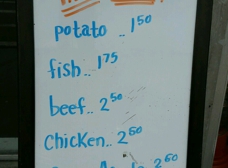 potato .. 1 50
fish.. 1 75
beef.. 2 50
Chicken.. 2 60
2 60